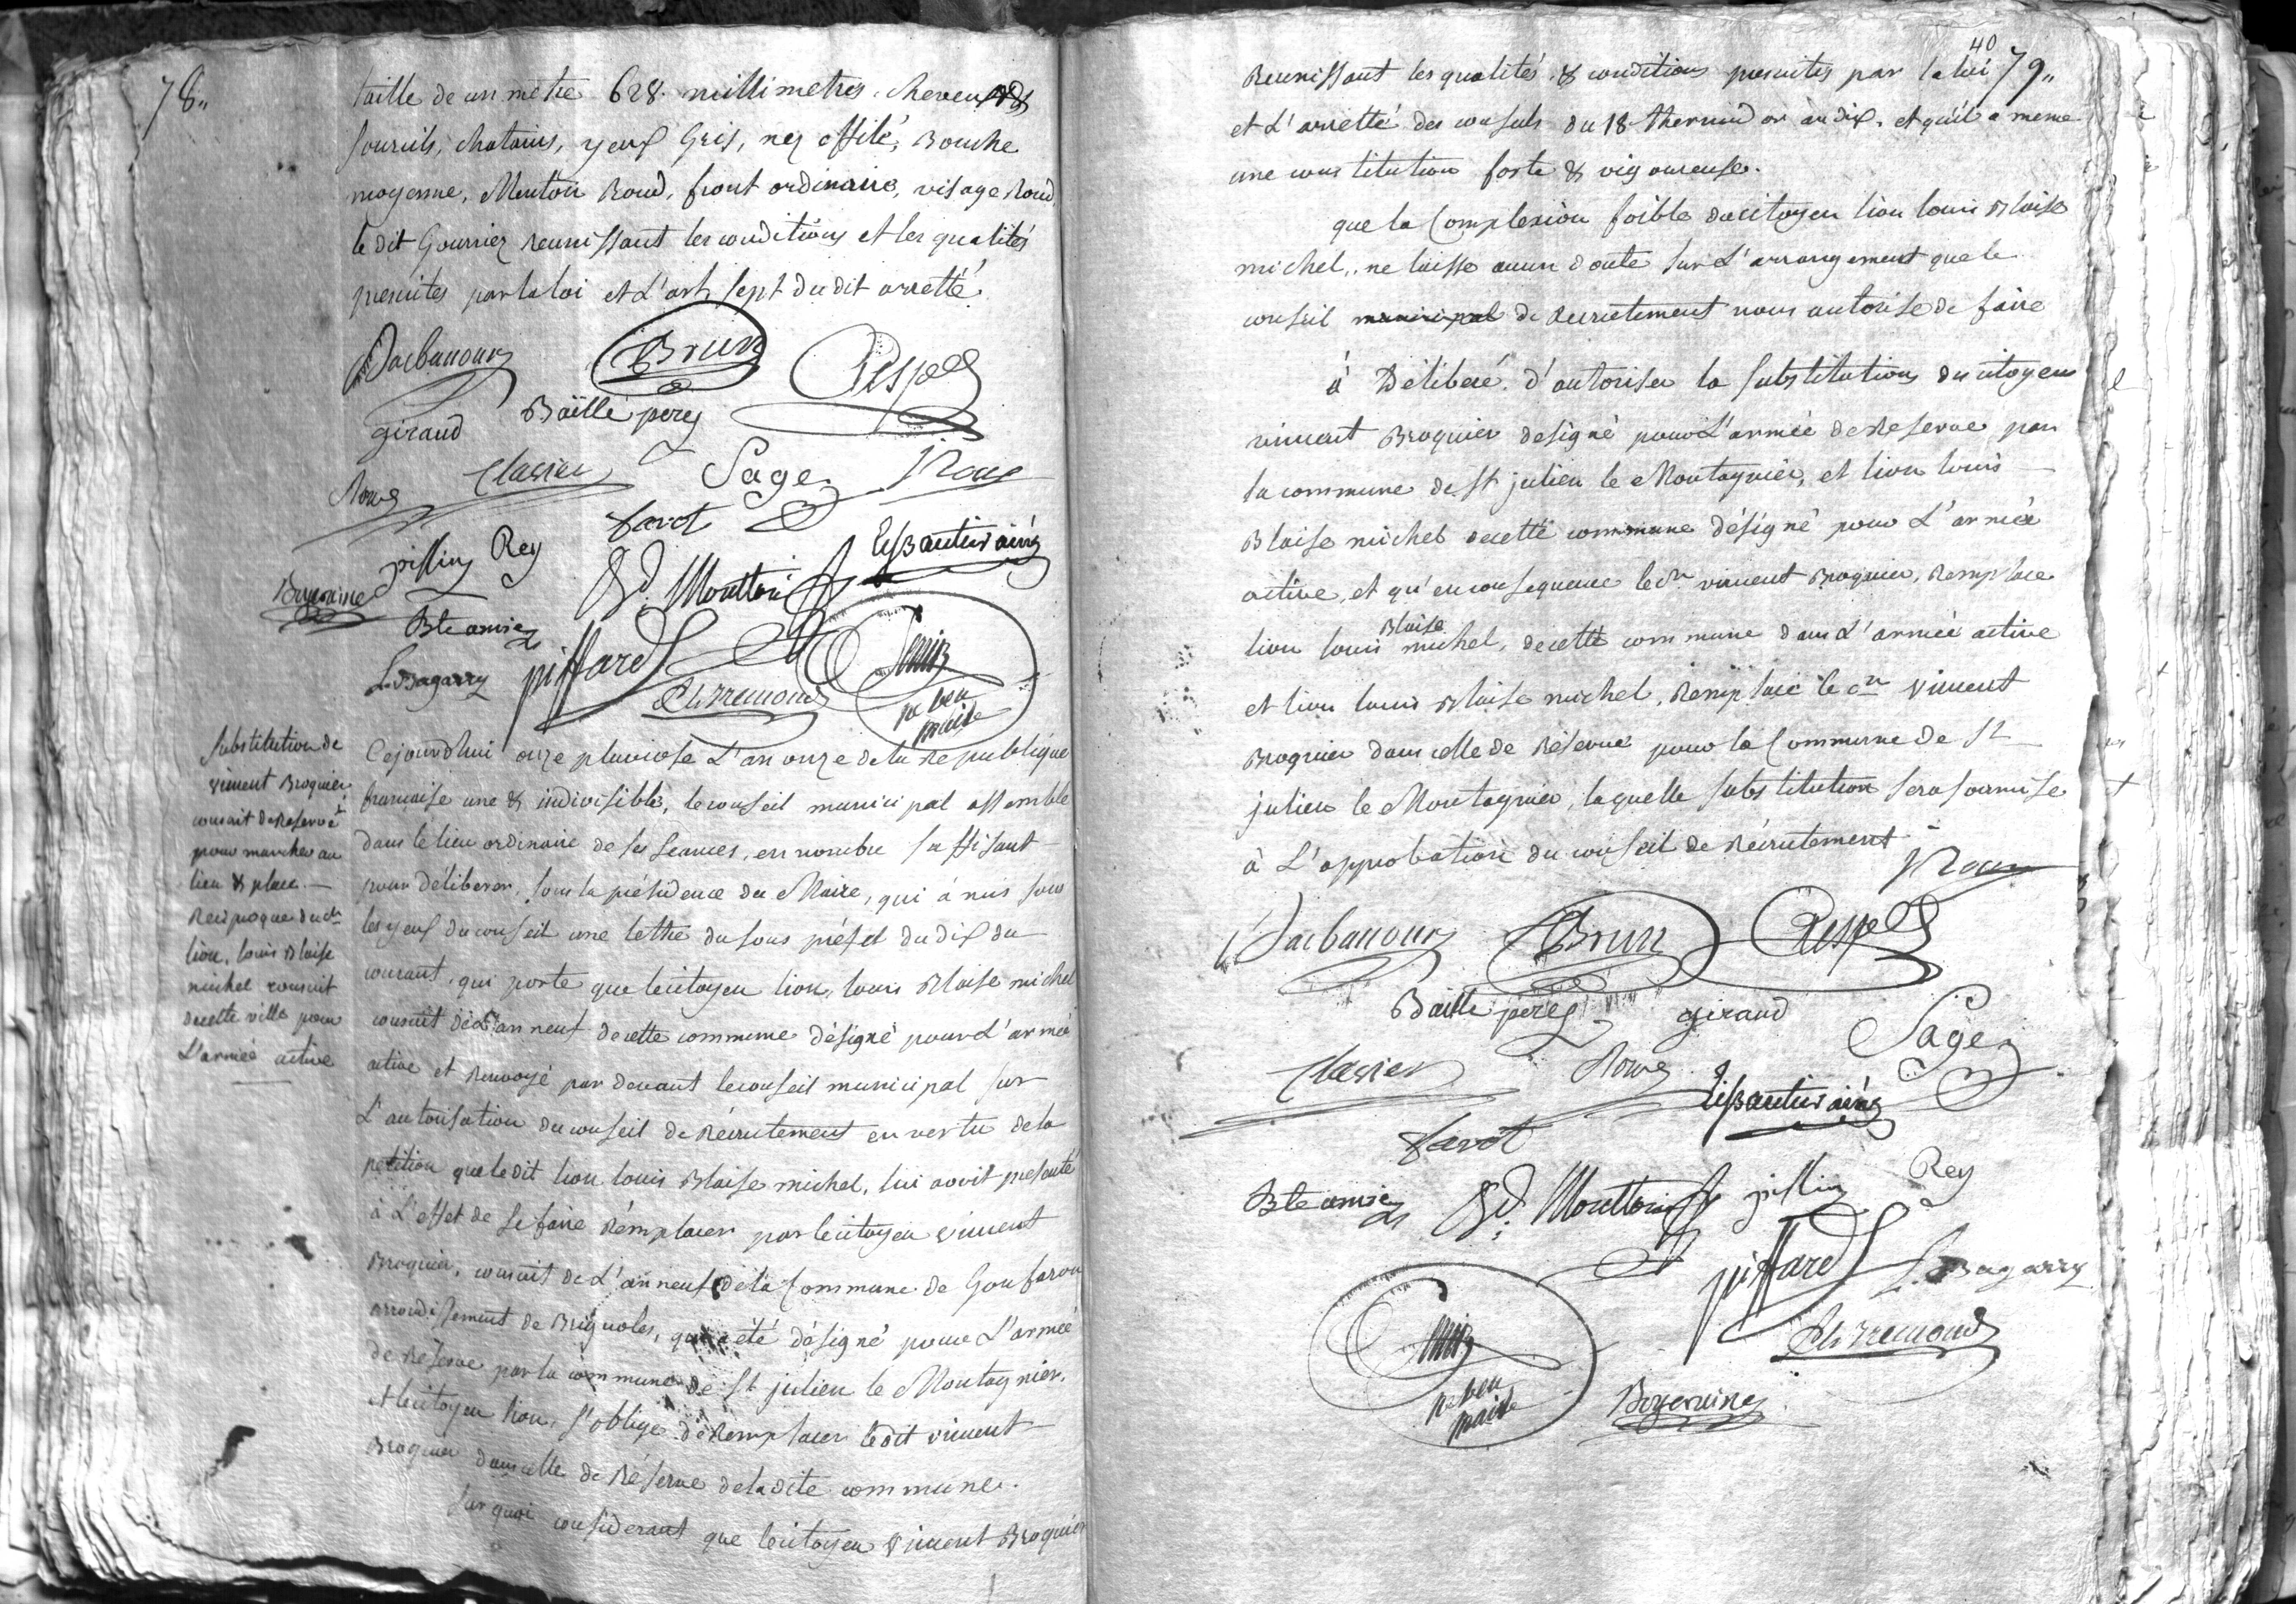 78"
taille de un mètre 628. millimetres. cheveux &
sourcils, chatains, yeux Gris, nez effilé, Bouche
moyenne, Menton Rond, front ordinaire, visage Rond
le dit Gourrier reunissant les conditions et les qualités
prescrites par la loi et L'art. sept du dit arretté.
Brun
giraud Baille pere
Clavier Sage J Roux
Roux
Favot
pissin Rey
Bd. Moutton
Bte amic
L. Bagarry piffard
maire
Substitution de
vincent Broquier
conscrit de Reserve
pour marcher au
lieu & place. —
Reciproque du cn
lion, louis Blaise
michel conscrit
de cette ville pour
L'armée active
Cejourdhui onze pluviose L'an onze de la Republique
francaise une & indivisible, le conseil municipal assemblé
dans le lieu ordinaire de ses seances, en nombre suffisant
pour déliberer, sous la présidence du Maire, qui à mis sous
les yeux du conseil une lettre du sous préfet du dix du
courant, qui porte que le citoyen lion, louis Blaise michel
conscrit de L'an neuf de cette commune désigné pour L'armée
active et Renvoyé par devant le conseil municipal sur
L'autorisation du conseil de Récrutement en vertu de la
petition que le dit lion louis Blaise michel, lui avoit presenté
à L'effet de se faire Rémplacer par le citoyen vincent
Broquier, conscrit de L'an neuf de la Commune de Gonfaron
arrondissement de Brignoles, qui a été désigné pour L'armée
de Réserve par la commune de St julien le Montagnier.
et le citoyen lion, s'oblige de Remplacer le dit vincent
Broquier dans celle de Réserve de la dite commune.
Sur quoi considerant que le citoyen vincent Broquier
40
79"
Reunissant les qualités & conditions prescrites par la loi
et L'arretté des consuls du 18 thermidor an dix, et qu'il a meme
une constitution forte & vigoureuse.
que la Complexion foible du citoyen lion louis Blaise
michel, ne laisse aucun doute sur L'arrangement que le
conseil municipal de Recrutement nous autorise de faire
à Déliberé d'autoriser la substitution du citoyen
vincent Broquier designé pour L'armée de Reserve par
la commune de St julien le Montagnier, et lion louis
Blaise michel de cette commune désigné pour L'armée
active, et qu'en consequence le cn vincent Broquier, Remplace
lion louis Blaise michel, de cette commune dans L'armée active
et lion louis Blaise michel, Remplace le cn vincent
Broquier dans celle de Réserve pour la Commune de St
julien le Montagnier, laquelle substitution sera soumise
à L'approbation du conseil de Récrutement
J Roux
Brun
Baille pere giraud
Sage
Clavier Roux
Favot
Bte amic Bd. Moutton pissin Rey
piffard L. Bagarry
maire